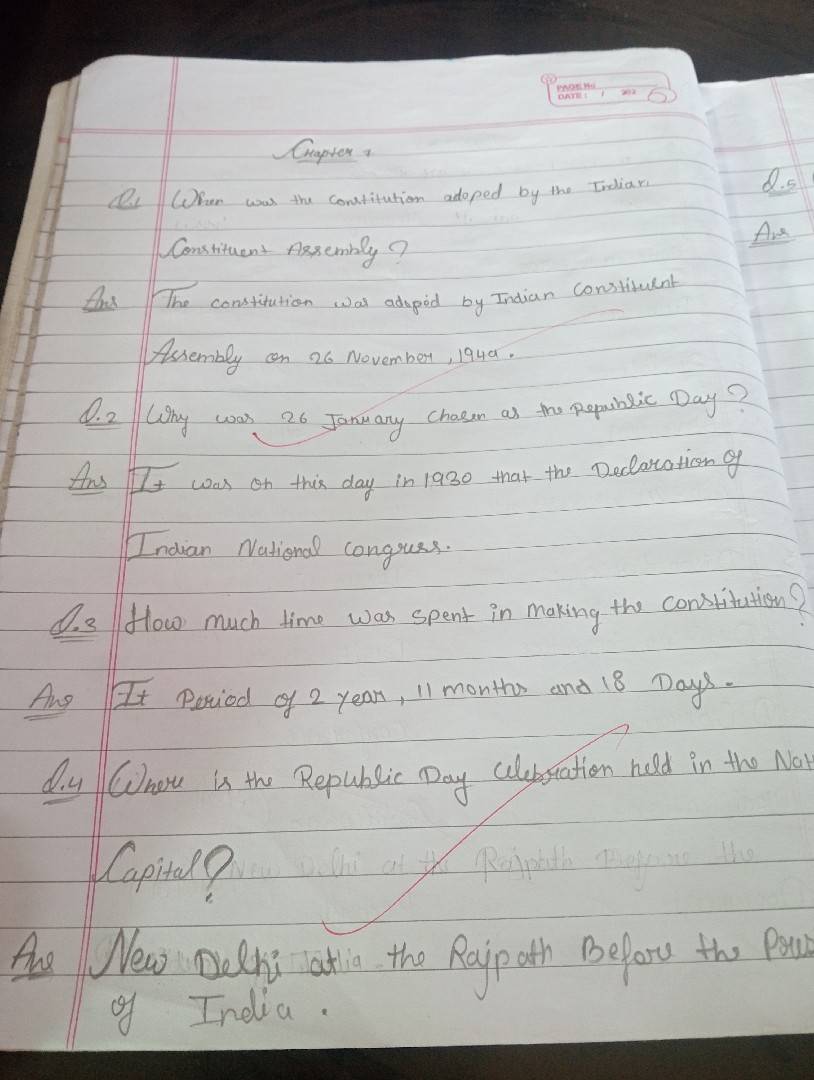 PAGE No.
DATE: / 202
Chapter 1
Q.1 When was the constitution adoped by the Indian
Constituent Assembly?
Ans The constitution was adoped by Indian Constituent
Assembly on 26 November, 1949.
Q.2 Why was 26 January chosen as the Republic Day?
Ans It was on this day in 1930 that the Declaration of
Indian National Congress.
Q.3 How much time was spent in making the constitution?
Ans It Period of 2 year, 11 months and 18 Days.
Q.4 Where is the Republic Day Celebration held in the Nat
Capital?
Ans New Delhi at the Rajpath Before the
of India.
Q.5
Ans